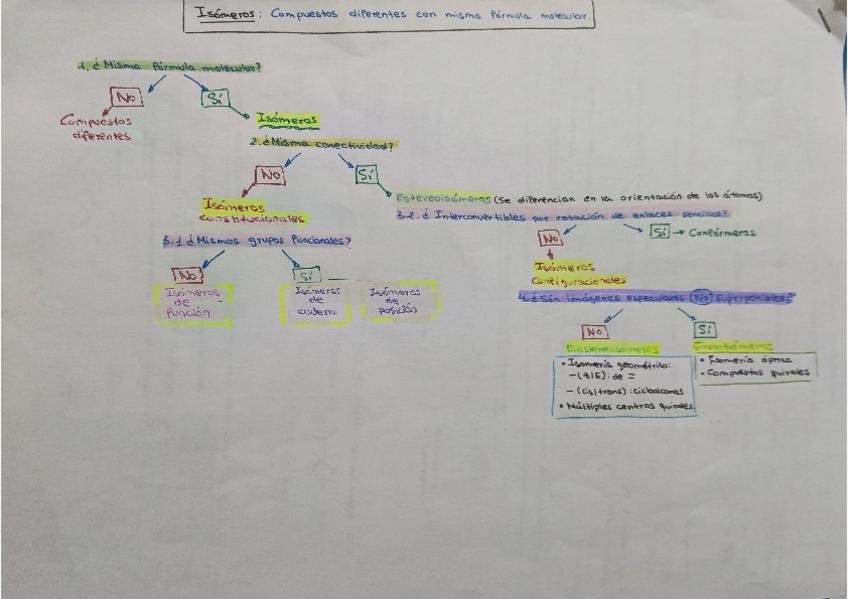 Isómeros: Compuestos diferentes con misma fórmula molecular.
1. ¿Misma fórmula molecular?
No
Sí
Compuestos
diferentes
Isómeros
2. ¿Misma conectividad?
No
Sí
Isómeros
constitucionales
Estereoisómeros (Se diferencian en la orientación de los átomos)
3.1 ¿Mismos grupos funcionales?
3.2. ¿Interconvertibles por rotación de enlaces sencillos?
No
Sí
No
Sí → Confórmeros
Isómeros
de
función
Isómeros
de
cadena
Isómeros
de
posición
Isómeros
configuracionales
4. ¿Són imágenes especulares (No) superponibles?
No
Sí
Diastereoisómeros
• Isomería geométrica:
- (Z/E): de =
- (cis/trans): cicloalcanos
• Múltiples centros quirales
Enantiómeros
• Isomería óptica
• Compuestos quirales